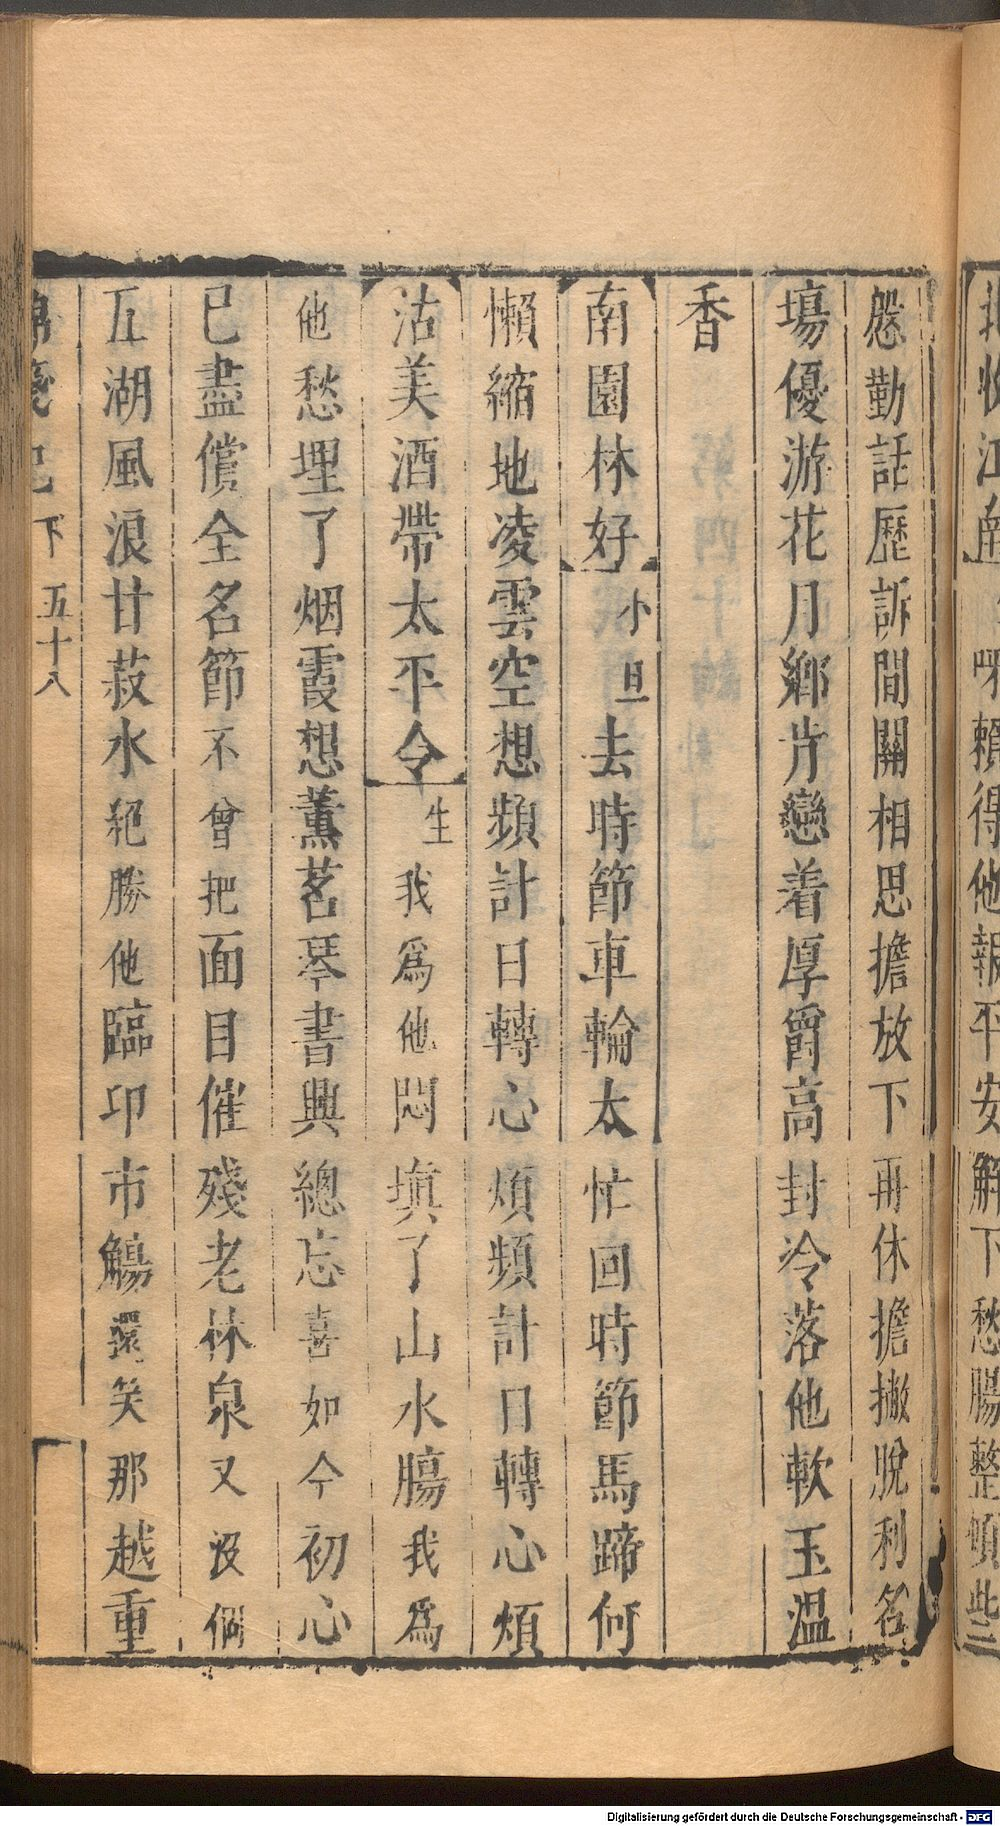 慇勤話歷訴間關相思擔放下再休擔撇脫利名
場優游花月鄉肯戀着厚爵高封冷落他軟玉溫
香
南園林好小旦去時節車輪太忙回時節馬蹄何
懶縮地凌雲空想頻計日轉心煩頻計日轉心煩
沽美酒帶太平令生我爲他悶塡了山水腸我爲
他愁埋了烟霞想薰茗琴書興總忘喜如今初心
已盡償全名節不曾把面目催殘老林泉又沒個
五湖風浪甘菽水絕勝他臨卭市觴還笑那越重
錦箋記 下 五十八
江南 呀賴得他報平安解下愁腸整頓些
Digitalisierung gefördert durch die Deutsche Forschungsgemeinschaft - DFG